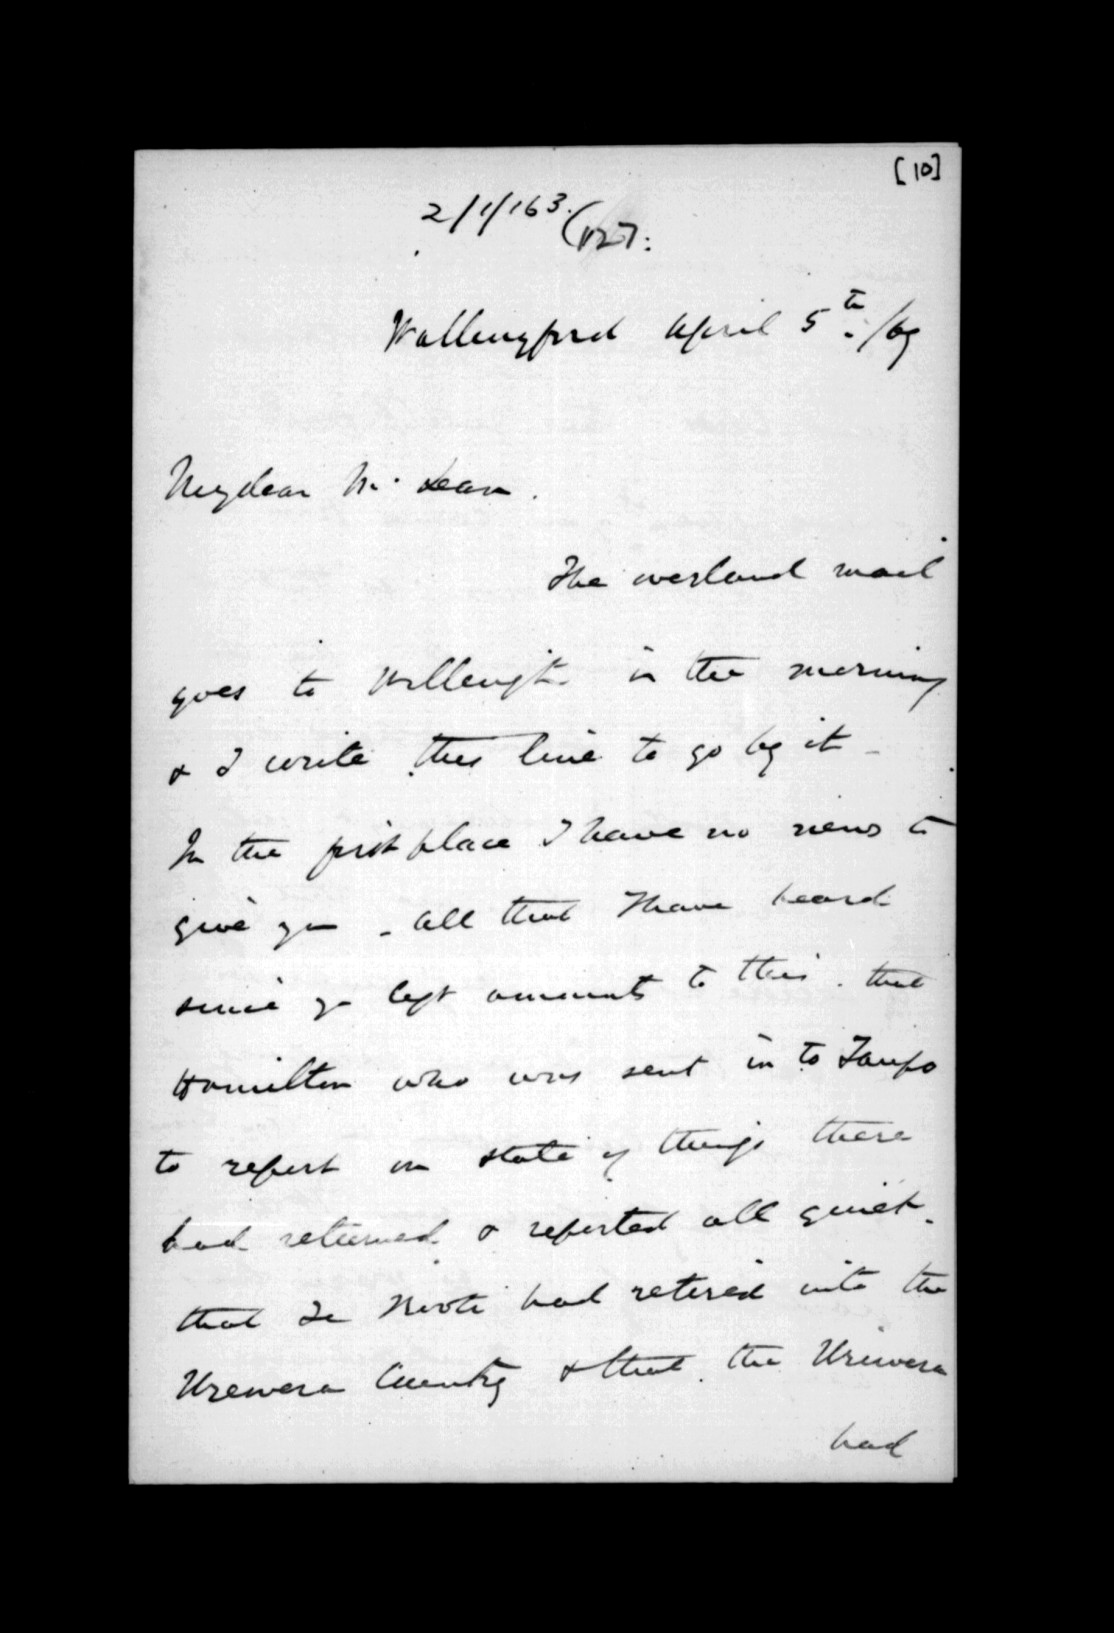 [10]
2/1/163.
(127:
Wallingford April 5th /69
My dear McLean.
The overland mail
goes to Wellingtn in the morning
& I write this line to go by it -
In the first place I have no news to
give you - all that I have heard
since yo left amounts to this. that
Hamilton who was sent in to Taupo
to report on state of things there
had returned & reported all quiet.
that Te Kooti had retired into the
Urewera Country & that the Uriwera
had